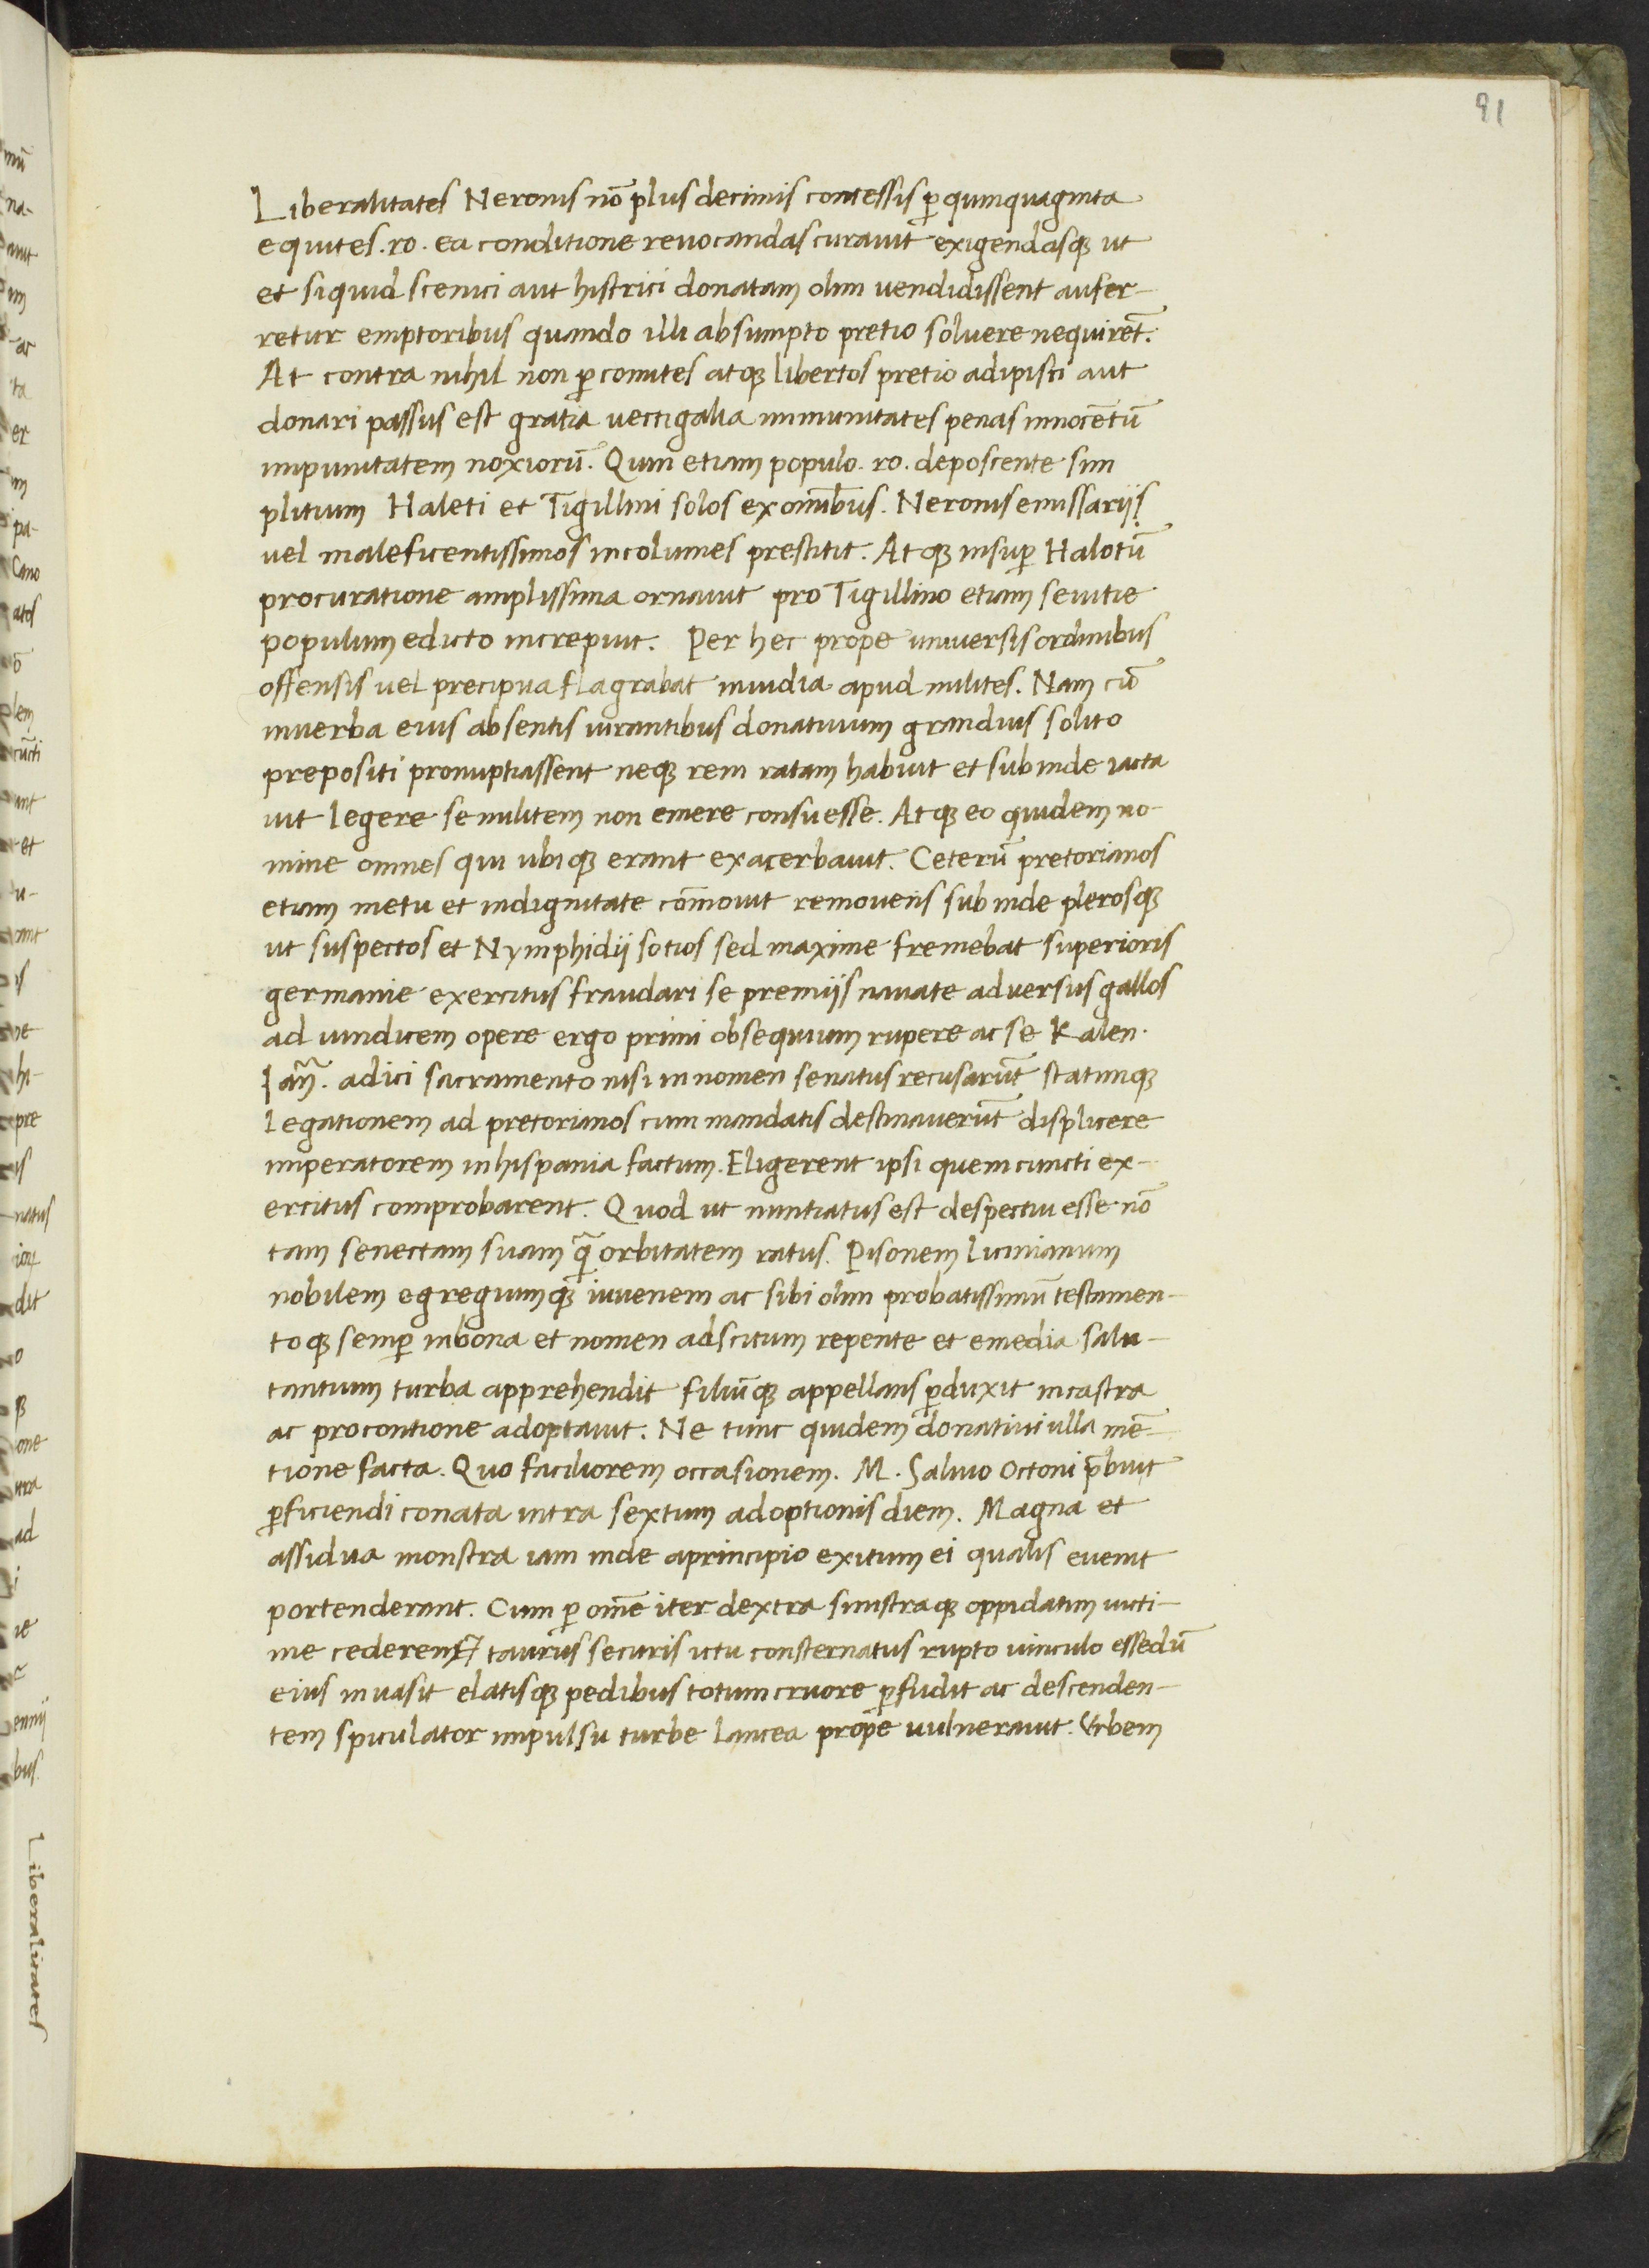 91
Liberalitates Neronis nō plus decimis contessis ꝑ quinquaginta
equites . ro . ea conditione reuocandas curauit exigendasqꝫ ut
et siquid scenici aut histrici donatam olim uendidissent aufer-
retur emptoribus quando illi absumpto pretio soluere nequirēt.
At contra nihil non ꝑ comites atqꝫ libertos pretio adipisci aut
donari passus est gratia uectigalia immunitates penas innocētū
impunitatem noxiorū. Quin etiam populo . ro . deposcente sim
plitium Haleti et Tigillini solos ex omībus. Neronis emissarijs
uel maleficentissimos incolumes prestitit. Atqꝫ insuꝑ Halotū
procuratione amplissima ornauit pro Tigillino etiam seuitie
populum edicto increpuit. Per hec prope uniuersis ordinibus
offensis uel precipua flagrabat inuidia apud milites. Nam cū
inuerba eius absentis iurantibus donatiuum grandius solito
prepositi pronuptiassent neqꝫ rem ratam habuit et subinde iacta
uit legere se militem non emere consuesse. Atqꝫ eo quidem no-
mine omnes qui ubiqꝫ erant exacerbauit. Ceterū pretorianos
etiam metu et indignitate cōmouit remouens subinde plerosqꝫ
ut suspectos et Nymphidij sotios sed maxime fremebat superioris
germanie exercitus fraudari se premijs nauate aduersus gallos
ad uindicem opere ergo primi obsequium rupere ac se Kalen.
Iañ. adici sacramento nisi in nomen senatus recusarūt statimqꝫ
legationem ad pretorianos cum mandatis destinauerūt displicere
imperatorem in hispania factum. Eligerent ipsi quem cuncti ex-
ercitus comprobarent. Quod ut nuntiatus est despectui esse nō
tam senectam suam q̃ orbitatem ratus. Pisonem licinianum
nobilem egregiumqꝫ iuuenem ac sibi olim probatissimū testamen-
toqꝫ semꝑ inbona et nomen adscitum repente et emedia salu-
tantium turba apprehendit filiūqꝫ appellans ꝑduxit in castra
ac procontione adoptauit. Ne tunc quidem donatiui ulla mē-
tione facta. Quo faciliorem occasionem. M. Saluio Octoni p̄buit
ꝑficiendi conata intra sextum adoptionis diem. Magna et
assidua monstra iam inde aprincipio exitum ei qualis euenit
portenderant. Cum ꝑ omē iter dextra sinistraqꝫ oppidatim uicti-
me cederent̃ taurus securis ictu consternatus rupto uinculo essedū
eius inuasit elatisqꝫ pedibus totum cruore ꝑfudit ac descenden-
tem spiculator impulsu turbe lancea prope uulnerauit. Vrbem
Liberalitates